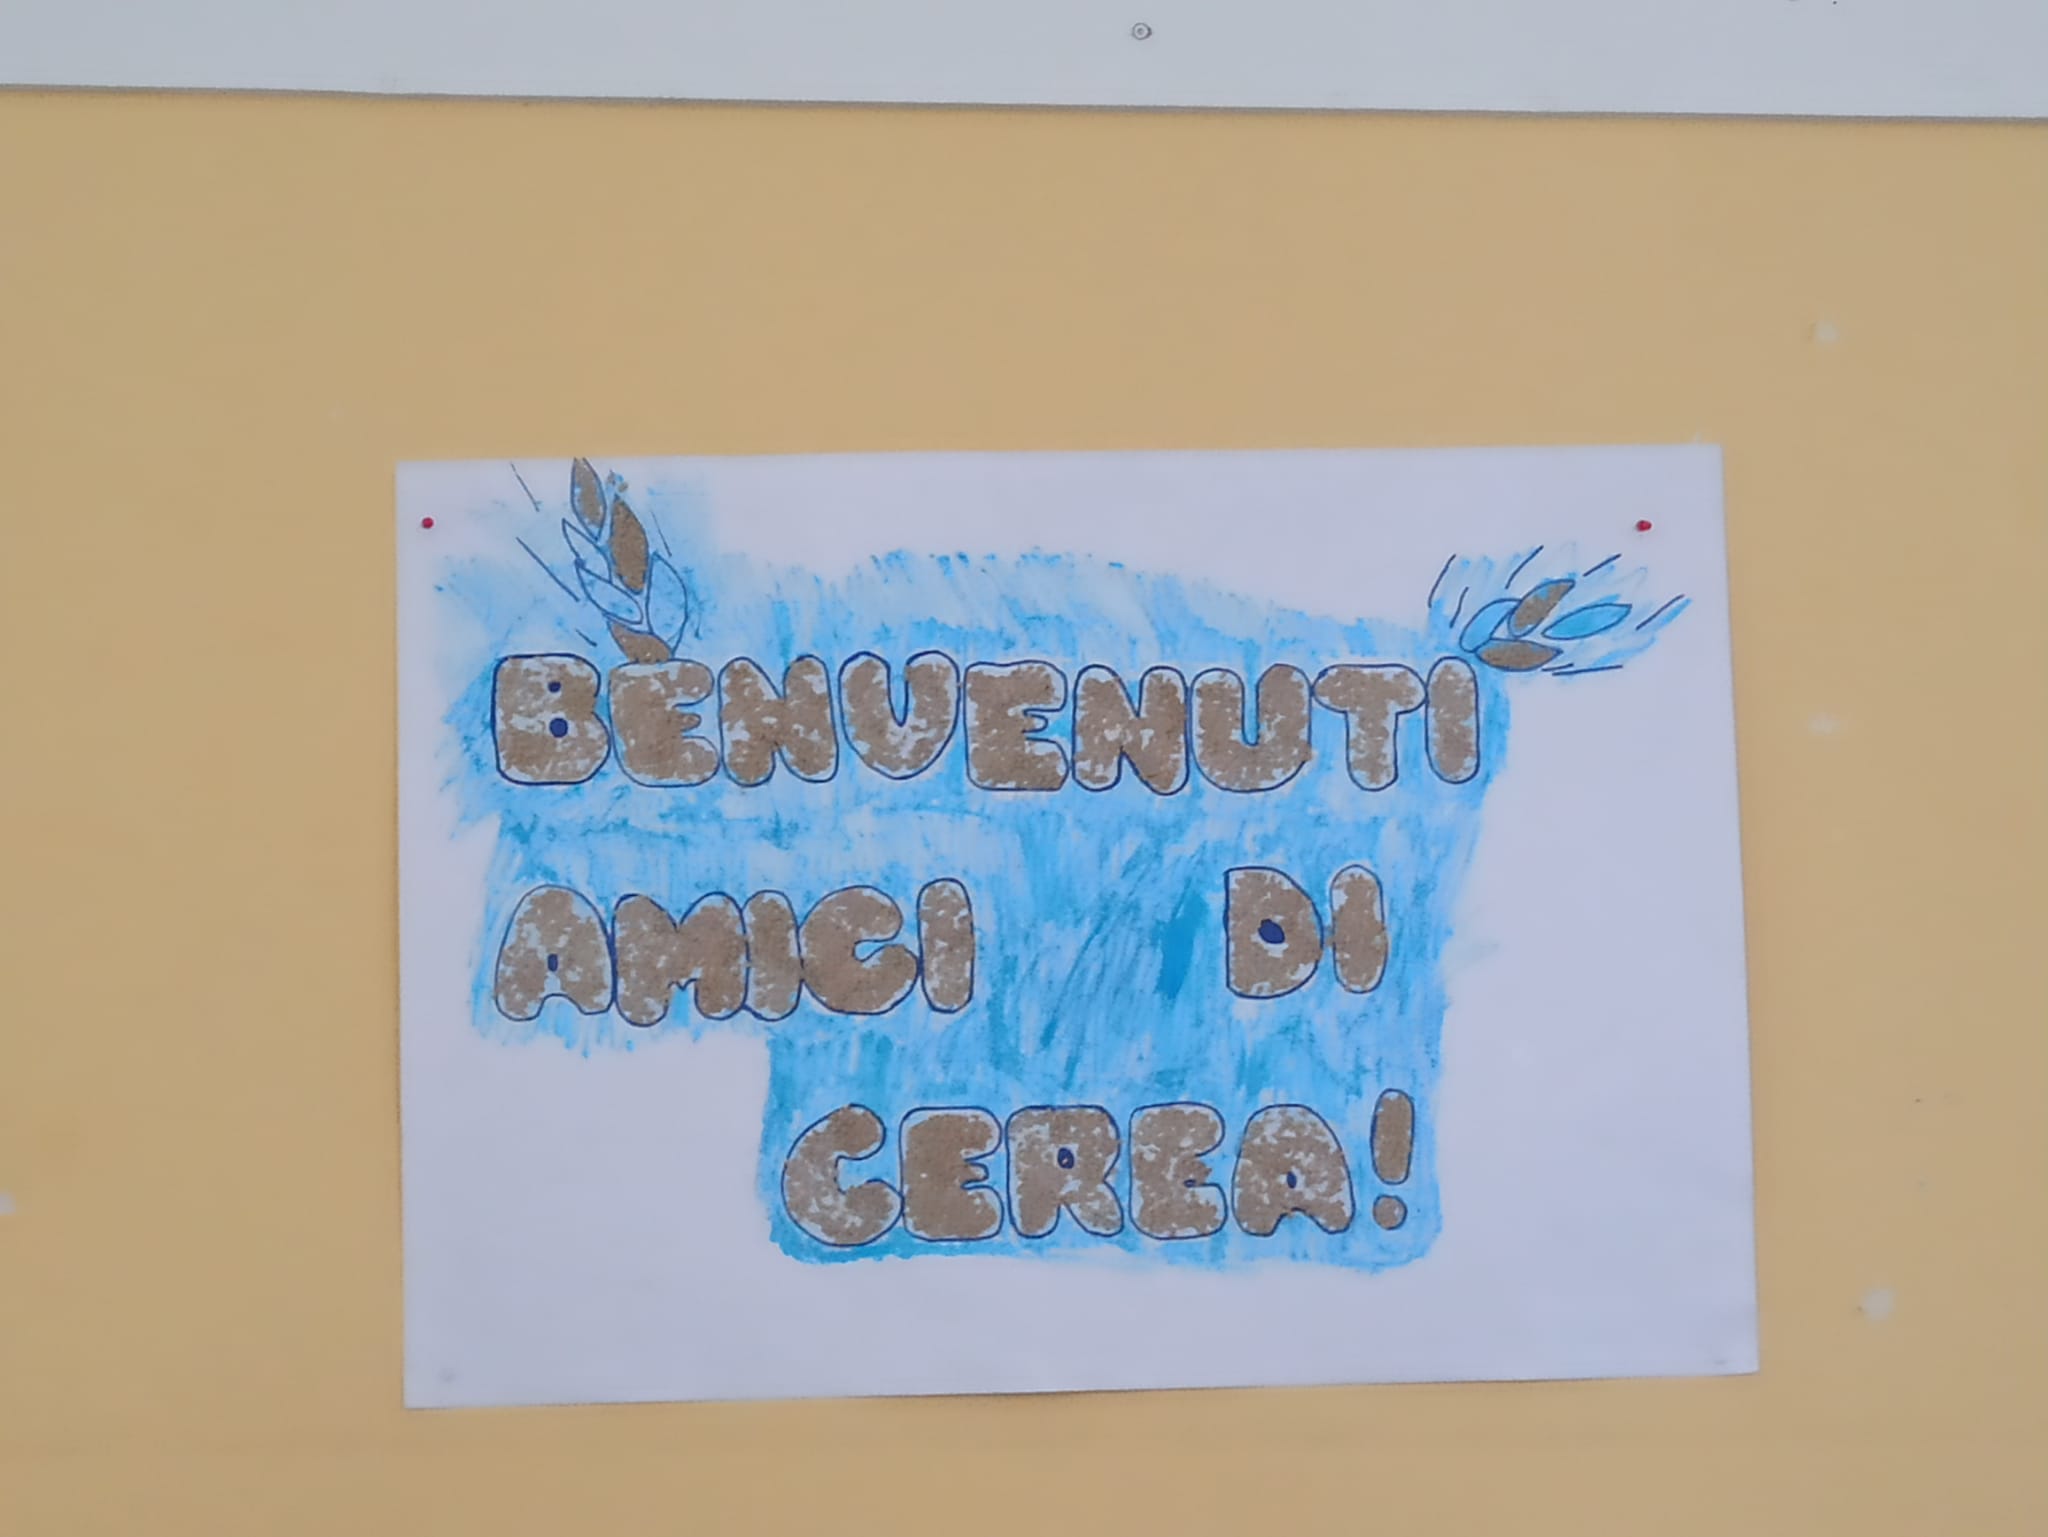 BENVENUTI
AMICI DI
CEREA!